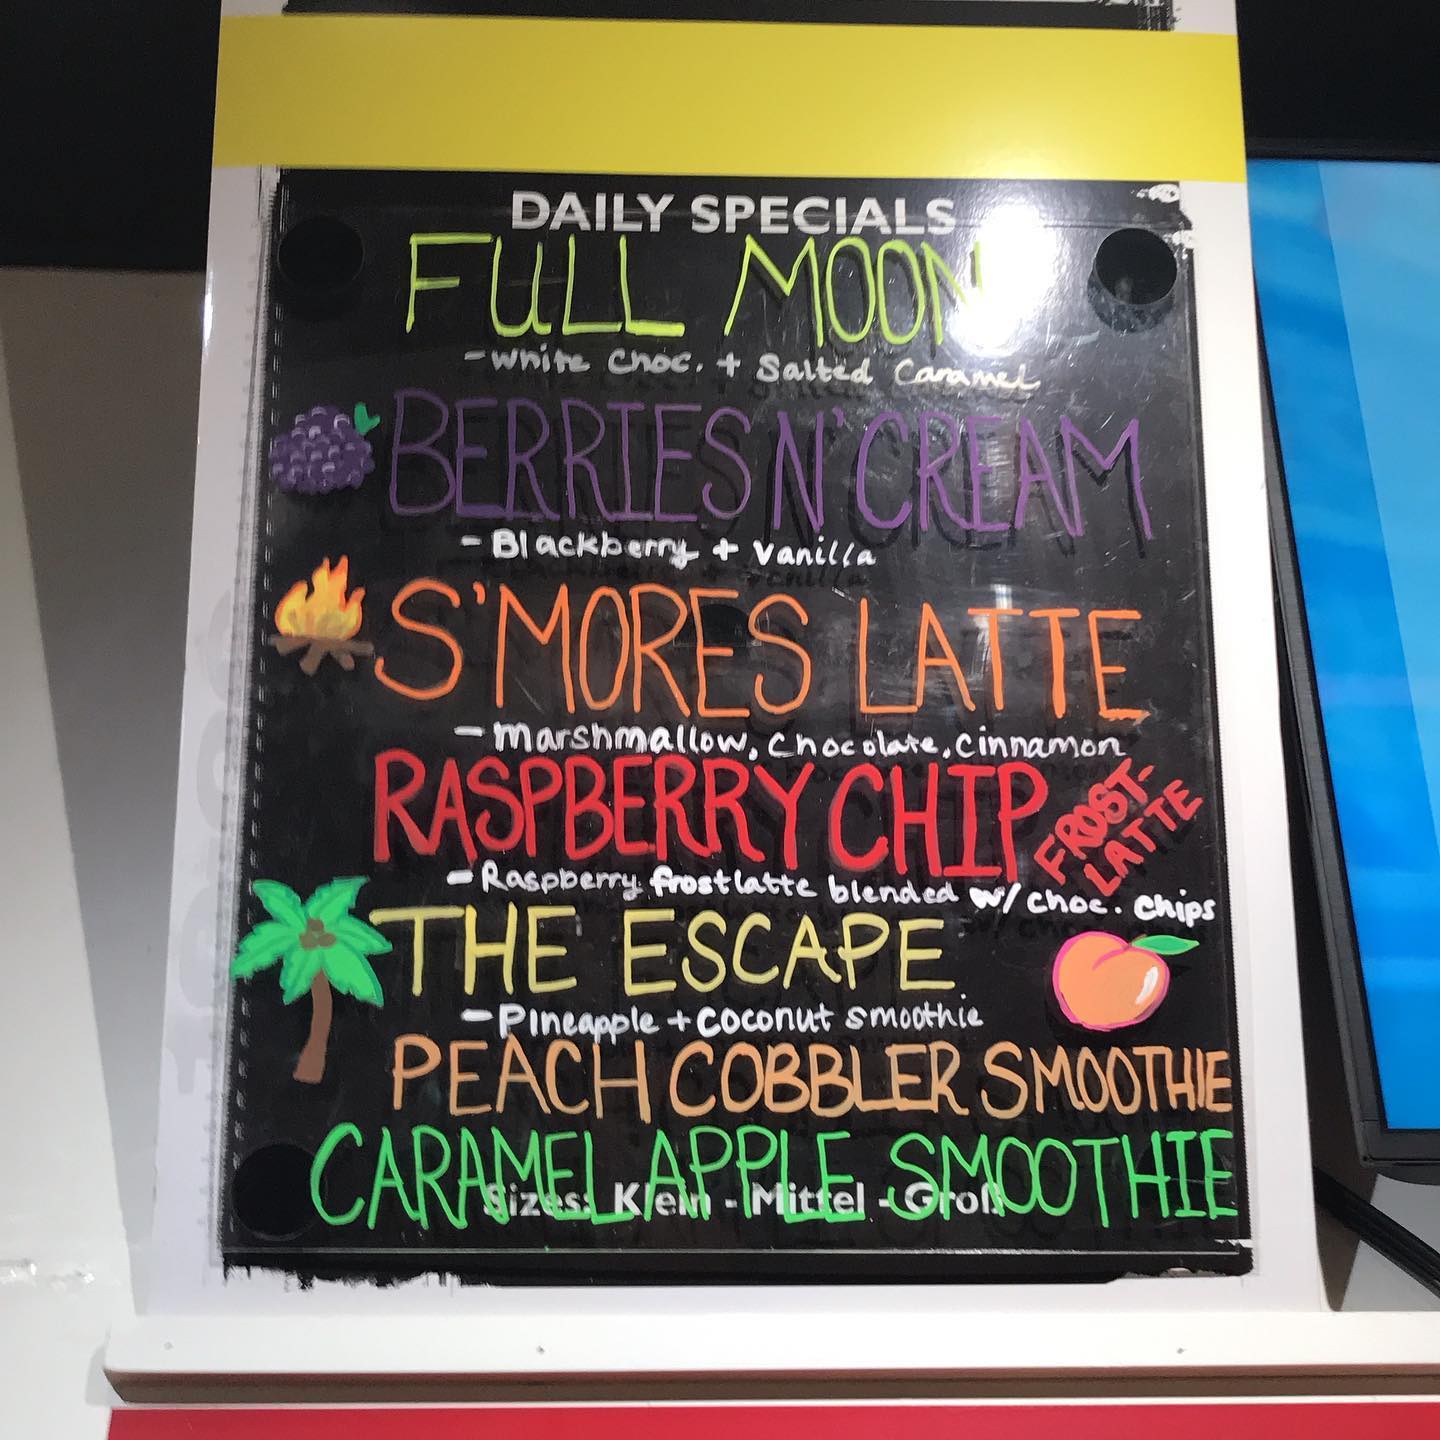 DAILY SPECIALS
FULL MOON
- white choc. + Salted Caramel
BERRIES N' CREAM
- Blackberry + Vanilla
S'MORES LATTE
- Marshmallow, Chocolate, Cinnamon
RASPBERRY CHIP FROST-
LATTE
- Raspberry frostlatte blended w/ choc. chips
THE ESCAPE
- Pineapple + Coconut smoothie
PEACH COBBLER SMOOTHIE
CARAMEL APPLE SMOOTHIE
Sizes: Klein - Mittel - Groß